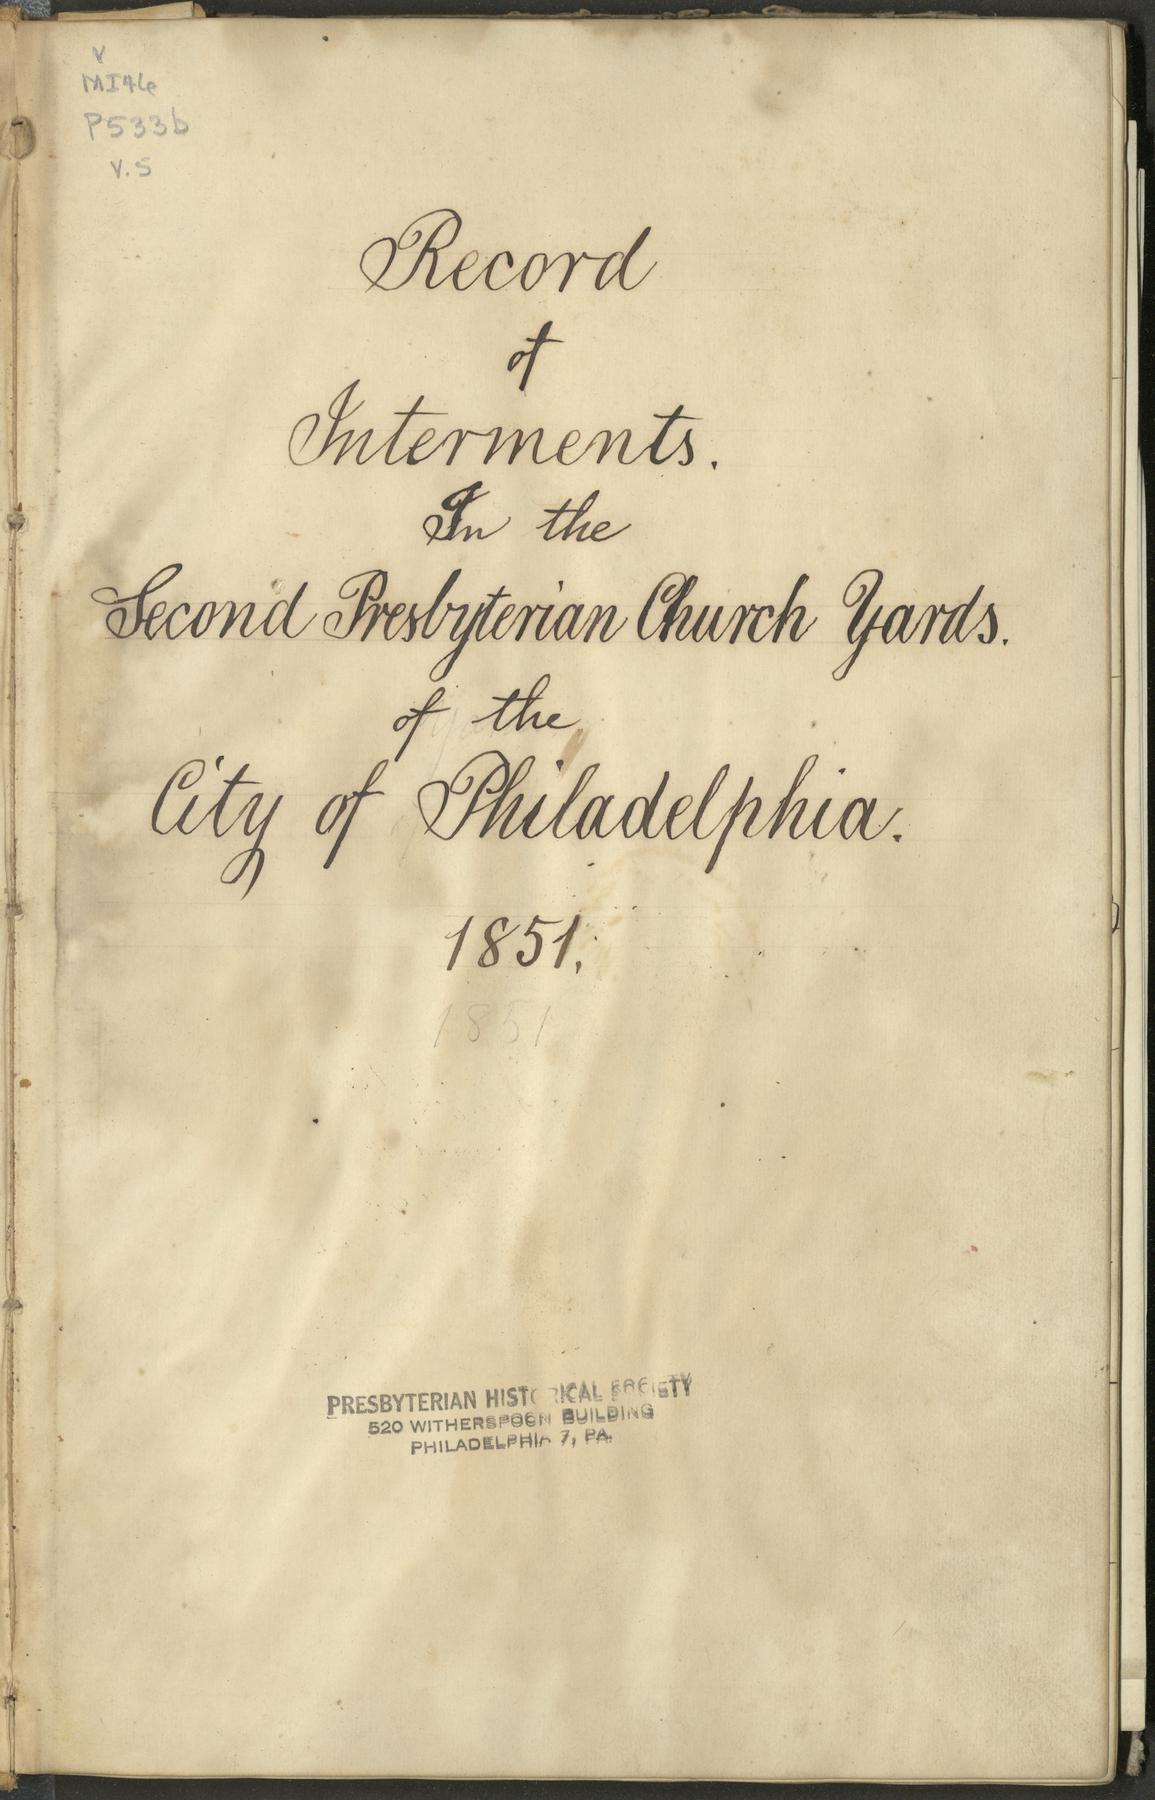 V
MI46
P533b
v.5
Record
of
Interments.
In the
Second Presbyterian Church Yards.
of the
City of Philadelphia.
1851.
1851
PRESBYTERIAN HISTORICAL SOCIETY
520 WITHERSPOON BUILDING
PHILADELPHIA 7, PA.